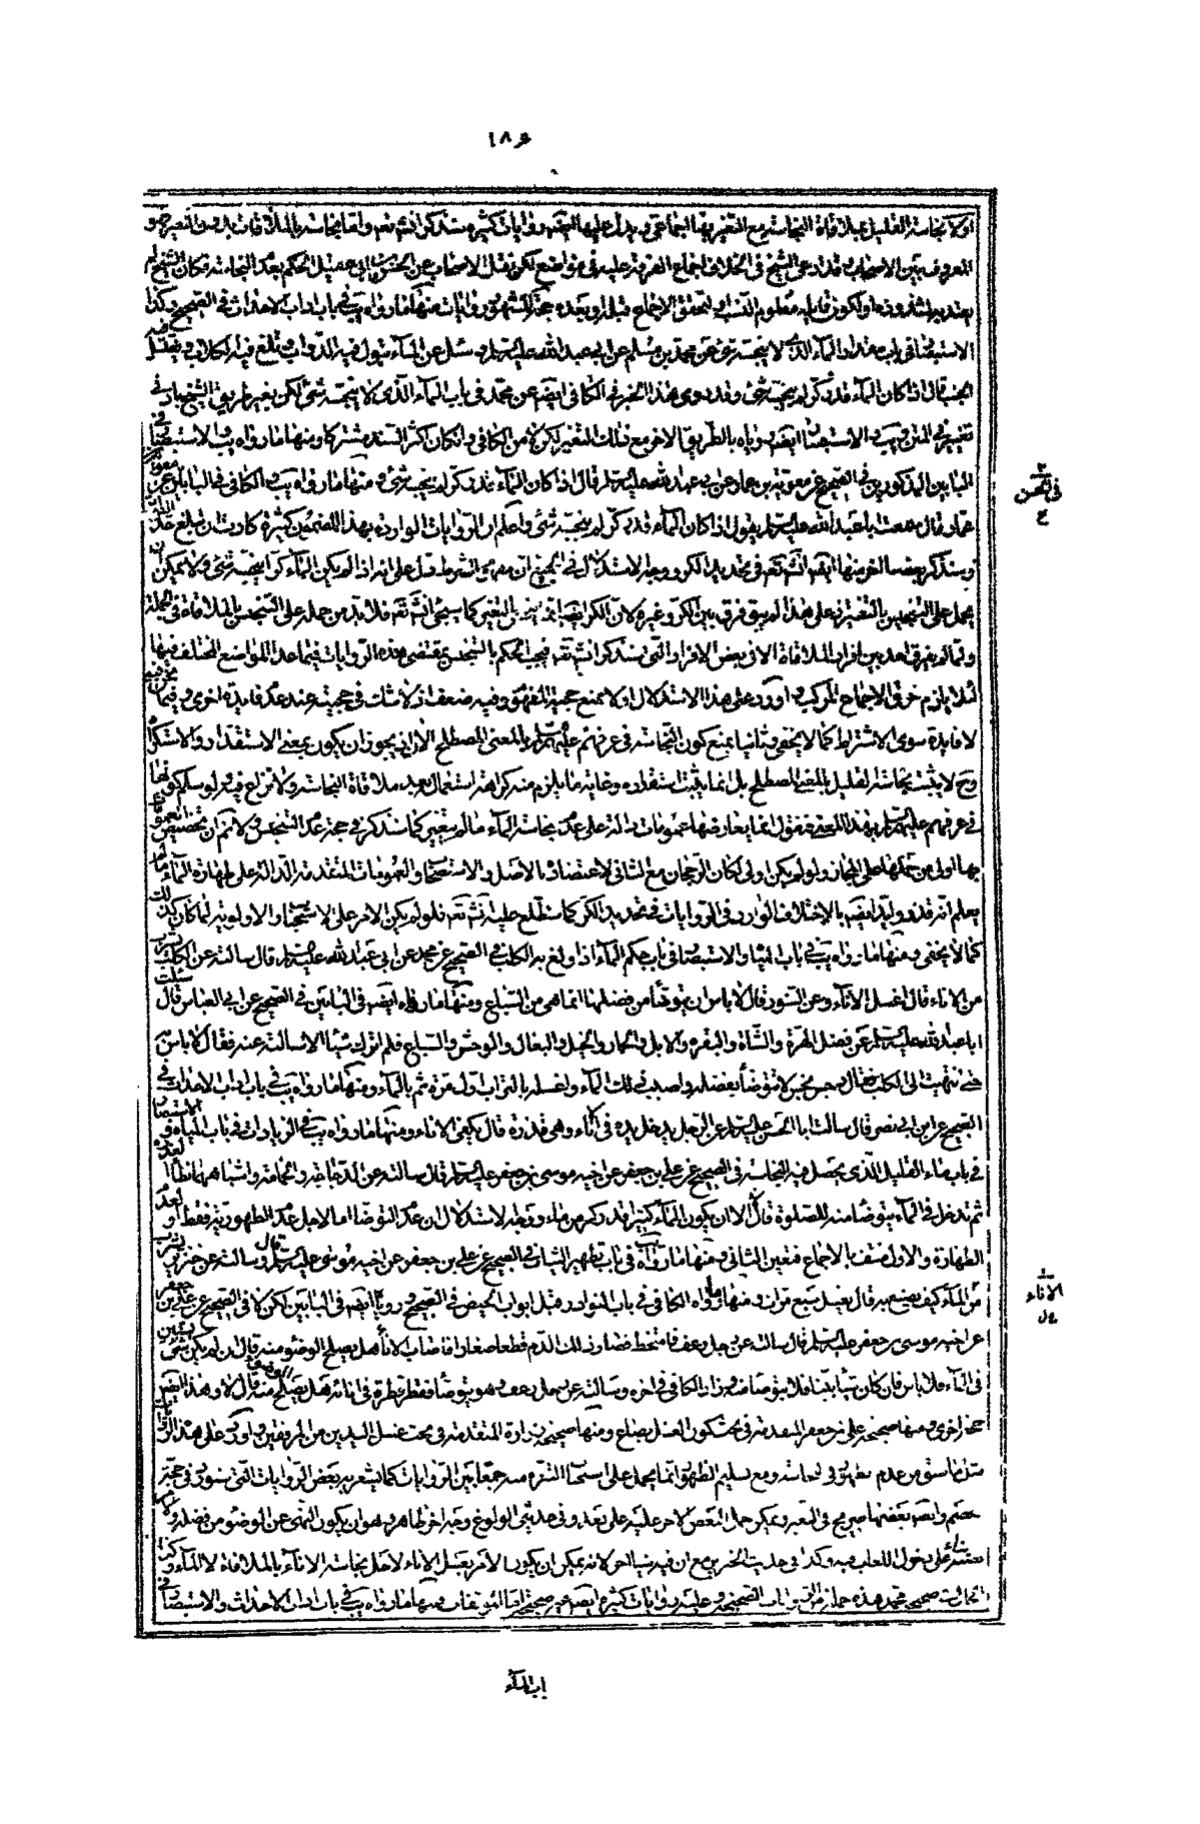 ١٨۶
اولا نجاسة القليل بملاقاة النجاسة مع التغير بها اجماعي ويدل عليها ايضا روايات كثيرة ستذكر انشاء تعم واما نجاسته بالملاقاة بدون التغير فهو
المعروف بين الاصحاب وقد ادعى الشيخ في الخلاف اجماع الفرقة عليه في مواضع لكن نقل الاصحاب عن الحسن بن ابي عقيل الحكم بعدم النجاسة فكان الشيخ لم
يعتد به لشذوذه او لكونه معلوم النسب او لتحقق الاجماع قبله او بعده حجة المشهور روايات منها ما رواه يب في باب آداب الاحداث في الصحيح وكذا
الاستبصار في باب مقدار الماء الذي لا ينجسه شئ عن محمد بن مسلم عن ابي عبد الله عليه السلم وسئل عن الماء تبول فيه الدواب وتلغ فيه الكلاب ويغتسل فيه
الجنب قال اذا كان الماء قدر كر لم ينجسه شئ وقد روى هذا الخبر في الكافي ايضا عن محمد في باب الماء الذي لا ينجسه شئ لكن بغير طريق الشيخ بادنى
تغيير في المتن ويب والاستبصار ايضا رواه بالطريق الاخر مع ذلك التغيير لكن لا من الكافي وان كان اكثر السند مشتركا ومنها ما رواه يب والاستبصار في
البابين المذكورين في الصحيح عن معوية بن عمار عن ابي عبد الله عليه السلم قال اذا كان الماء قدر كر لم ينجسه شئ ومنها ما رواه يب والكافي في البابين عن معوية بن
عمار قال سمعت ابا عبد الله عليه السلم يقول اذا كان الماء قدر كر لم ينجسه شئ واعلم ان الروايات الواردة بهذا المضمون كثيرة كادت ان تبلغ حد التواتر
وستذكر بعضها ايضا انشاء تعم في تحديد الكر ووجه الاستدلال في الجميع ان مفهوم الشرط يدل على انه اذا لم يكن الماء كرا ينجسه شئ ولا يمكن ان
يحمل على التنجيس بالتغير اذ على هذا لم يبق فرق بين الكر وغيره لان الكر ايضا ينجس بالتغير كما سيجئ انشاء تعم فلا بد من حمله على التنجيس بالملاقاة في الجملة
ولما لم يفرق احد بين افراد الملاقاة الا في بعض الافراد التي ستذكر انشاء تعم فيجب الحكم بالتنجيس بمقتضى هذه الروايات فيما عدا المواضع المختلف فيها
لئلا يلزم خرق الاجماع المركب واورد على هذا الاستدلال اولا بمنع حجية المفهوم وفيه ضعف اذ لا شك في حجيته عند عدم فايدة اخرى وفيما نحن فيه
لا فايدة سوى الاشتراط كما لا يخفى وثانيا بمنع كون النجاسة في عرفهم عليهم السلم بالمعنى المصطلح الان اذ يجوز ان يكون بمعنى الاستقذار والاستكراه
وح لا يثبت نجاسة القليل بالمعنى المصطلح بل انما يثبت استقذاره وغاية ما يلزم منه كراهة استعماله بعد ملاقاة النجاسة ولا نزاع فيه ولو سلم كونها
في عرفهم عليهم السلم بهذا المعنى فنقول انما يعارضها عمومات دالة على عدم نجاسة الماء ما لم يتغير كما سنذكر في حجة عدم التنجيس ولا نم ان تخصيص العمومات
بها اولى من حملها على المجاز ولو لم يكن اولى لكان الرجحان مع الثاني لاعتضاده بالاصل والاستصحاب والعمومات المتقدمة الدالة على طهارة الماء ما لم
يعلم انه قذر وايد ايضا بالاختلاف الوارد في الروايات في تحديد الكر كما ستطلع عليه انشاء تعم فلو لم يكن الامر على الاستحباب والاولوية لما كان كذلك
كما لا يخفى ومنها ما رواه يب في باب المياه والاستبصار في باب حكم الماء اذا ولغ به الكلب في الصحيح عن محمد عن ابي عبد الله عليه السلم قال سالته عن الكلب يشرب
من الاناء قال اغسل الاناء وعن السنور قال لا باس ان يتوضأ من فضلها انما هي من السباع ومنها ما رواه ايضا في البابين في الصحيح عن ابي العباس قال سئلت
ابا عبد الله عليه السلم عن فضل الهرة والشاة والبقرة والابل والحمار والخيل والبغال والوحش والسباع فلم اترك شيئا الا سالته عنه فقال لا باس
حتى انتهيت الى الكلب فقال رجس نجس لا تتوضأ بفضله واصبب ذلك الماء واغسله بالتراب اول مرة ثم بالماء ومنها ما رواه يب في باب آداب الاحداث في
الصحيح عن ابن ابي نصر قال سالت ابا الحسن عليه السلم عن الرجل يدخل يده في الاناء وهي قذرة قال يكفئ الاناء ومنها ما رواه يب في الزيادات في باب المياه والاستبصار
في باب الماء القليل الذي يحصل فيه النجاسة في الصحيح عن علي بن جعفر عن اخيه موسى بن جعفر عليه السلم قال سالته عن الدجاجة والحمامة واشباههما تطأ العذرة
ثم تدخل في الماء يتوضأ منه للصلوة قال لا الا ان يكون الماء كثيرا قدر كر من ماء ووجه الاستدلال ان عدم التوضأ اما لاجل عدم الطهورية فقط او لعدم
الطهارة والاول منتف بالاجماع فتعين الثاني ومنها ما رواه في باب تطهير الثياب في الصحيح عن علي بن جعفر عن اخيه موسى عليه السلم قال وسالته عن خنزير يشرب
من اناء كيف يصنع به قال يغسل سبع مرات ومنها ما رواه الكافي في باب النوادر قبل ابواب الحيض في الصحيح ورواه ايضا في البابين لكن لا في الصحيح عن علي بن جعفر
عن اخيه موسى بن جعفر عليه السلم قال سالته عن رجل رعف فامتخط فصار ذلك الدم قطعا صغارا فاصاب اناءه هل يصلح الوضوء منه قال ان لم يكن شئ يستبين
في الماء فلا باس فان كان شيئا بينا فلا يتوضأ منه وزاد الكافي في اخره وسالته عن رجل رعف وهو يتوضأ فقطر قطرة في انائه هل يصلح الوضوء منه قال لا وهذا ايضا
حجة اخرى ومنها صحيحة علي بن جعفر المتقدمة في بحث كون الغسل بصاع ومنها صحيحة زرارة المتقدمة في بحث غسل اليدين من المرفقين واورد على هذه الروايات
مثل ما سبق من عدم ظهور في نجاسته ومع تسليم الظهور انما يحمل على استحباب التنزه منه جمعا بين الروايات كما يشعر به بعض الروايات التي سنورد في حجة
خصم وايضا بعضها صريح في التغير ويمكن حمل البعض الاخر عليه على بعد وفي حديثي الولوغ وجه اخر ظاهر وهو ان يكون النهي عن الوضوء من فضله
على دخول اللعاب فيه وكذا في حديث الخنزير مع ان فيه شيئا اخر لانه يمكن ان يكون الامر بغسل الاناء لاجل نجاسة الاناء بالملاقاة لا الماء وكذا
صحيح محمد هذه جملة من الروايات الصحيحة وعليه روايات كثيرة ايضا غير صحيحة اما الموثقات فمنها ما رواه يب في باب آداب الاحداث والاستبصار في
٢
في الحسن
ع
١
الاناء
ول
باب الماء